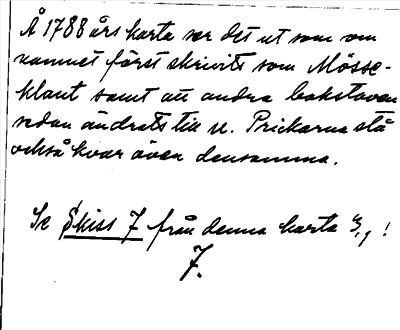 Å 1788 års karta ser det ut som om
namnet först skrivits som Mösse-
klaut samt att andra bokstaven
sedan ändrats till u. Prickarna stå
också kvar över densamma.
Se Skiss 7 från denna karta 3/1!
7.